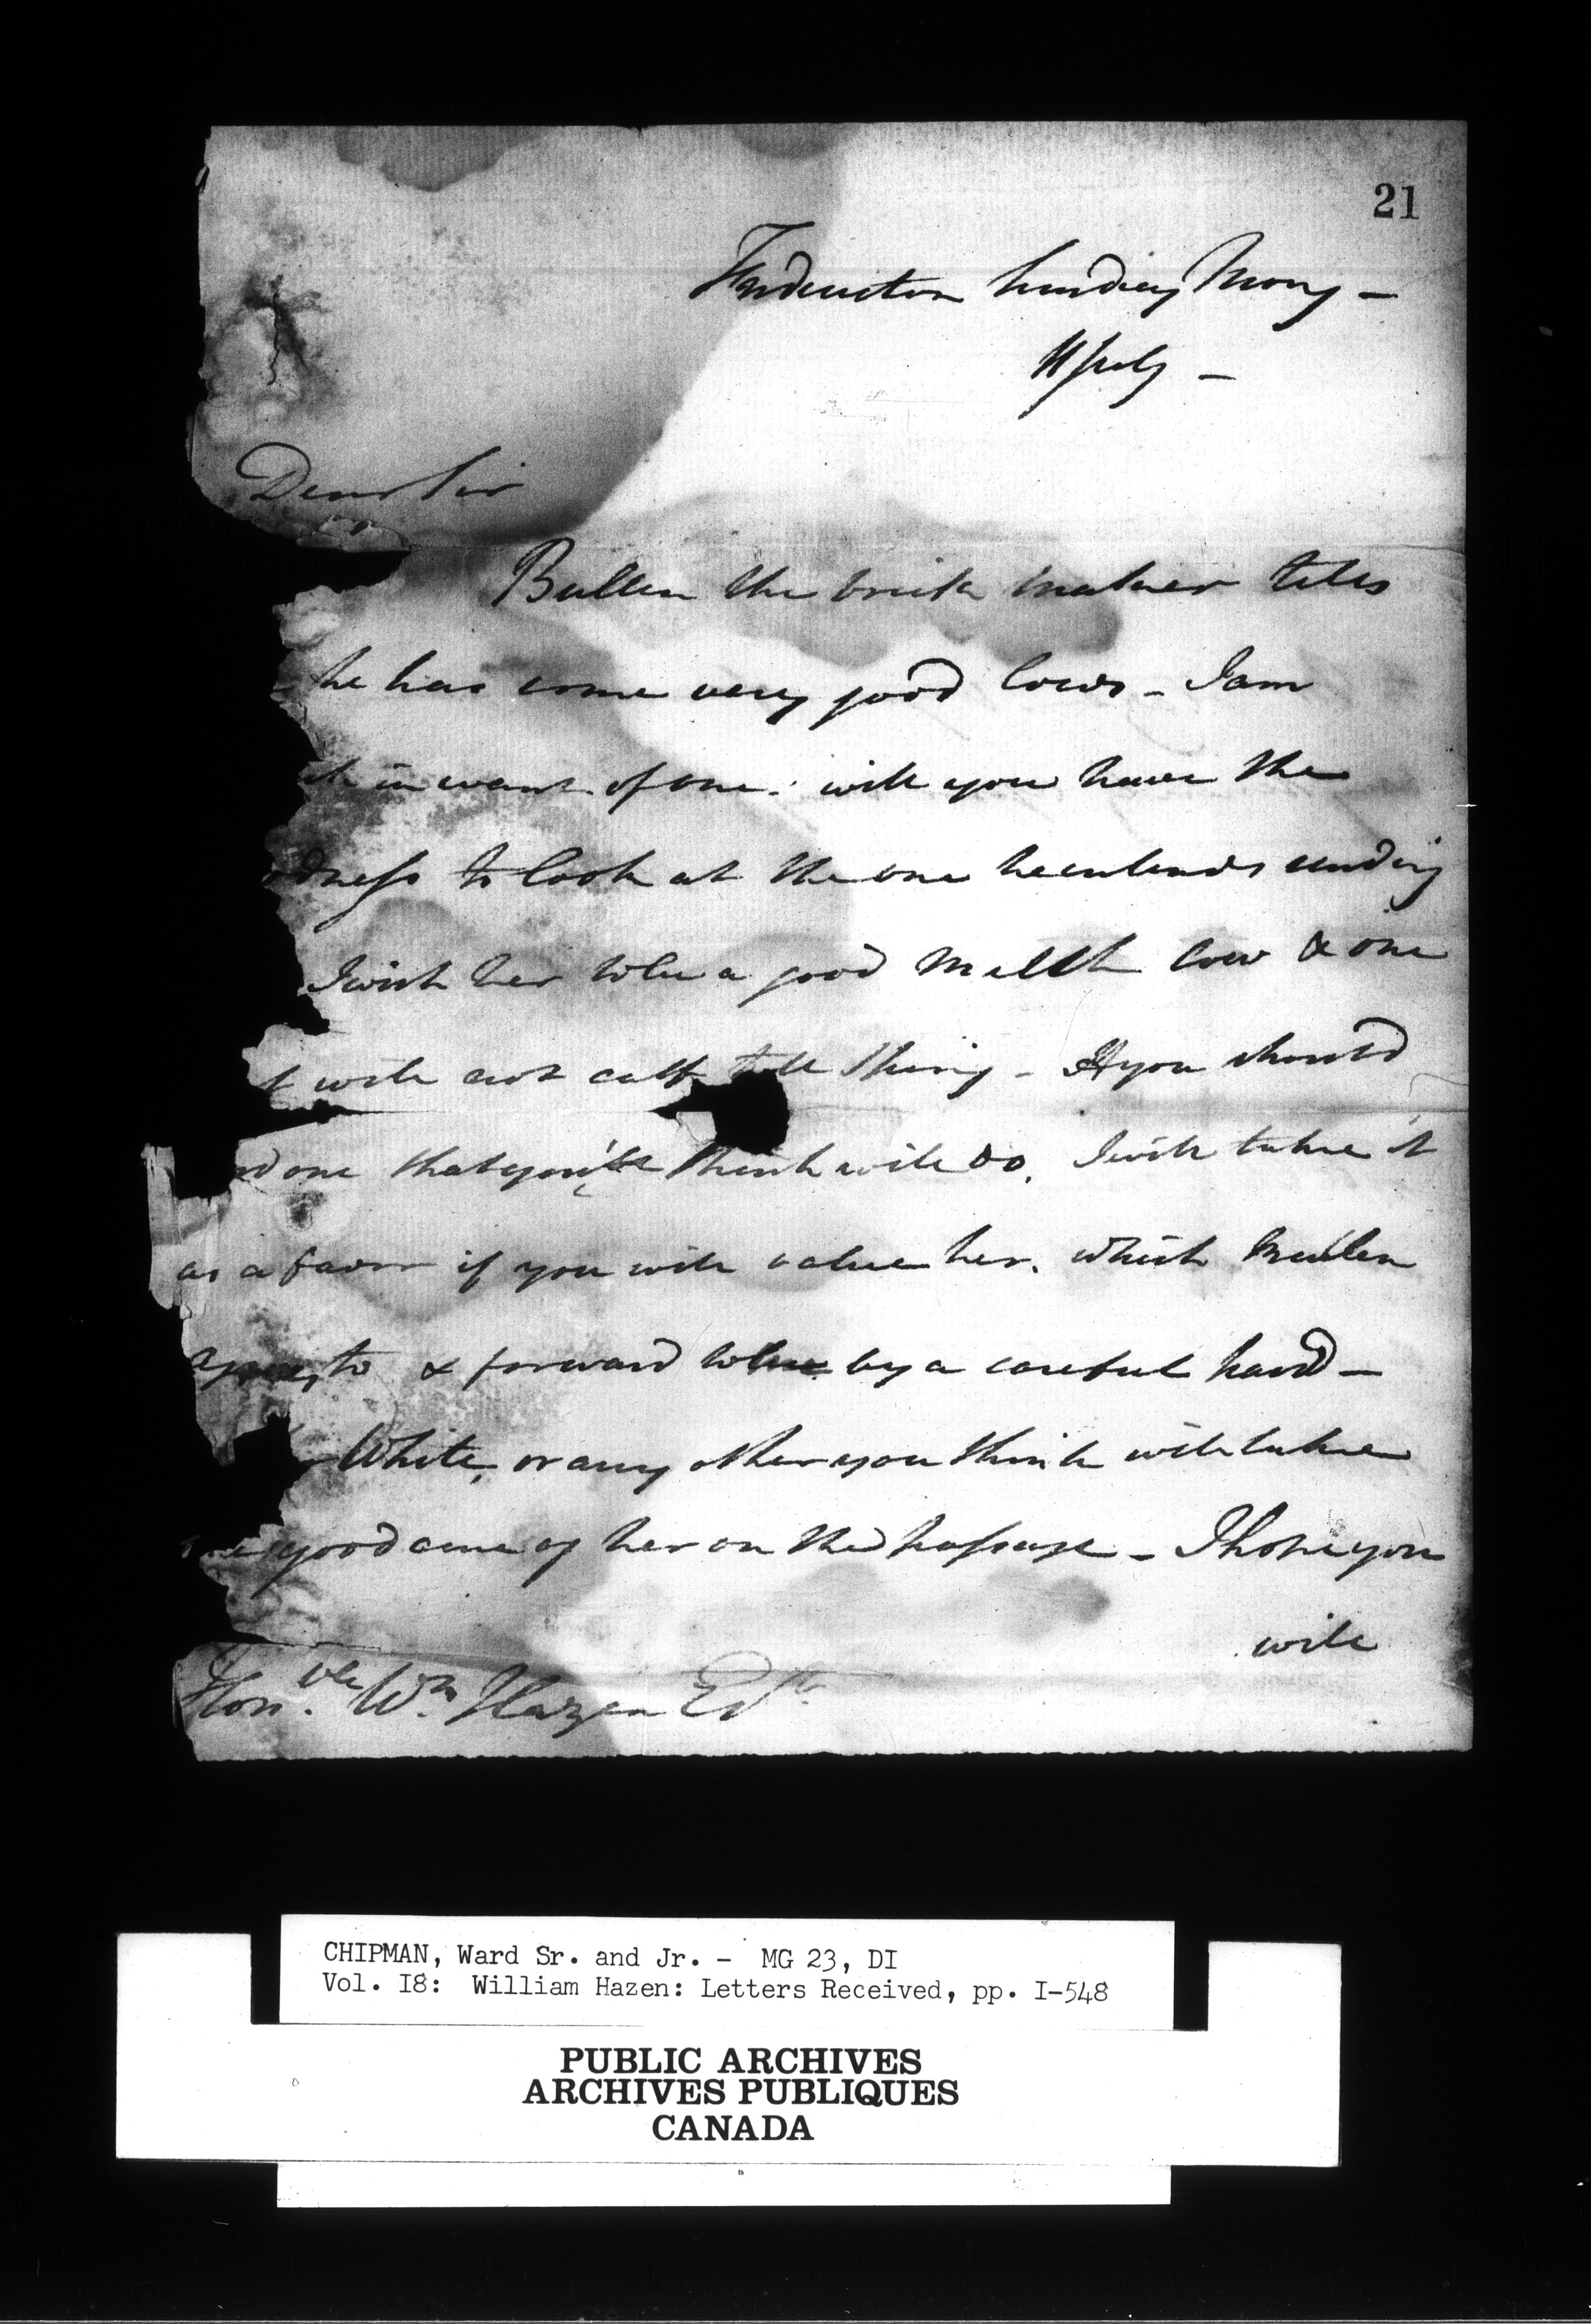 21
Fredericton Sunday Morng —
11 July —
Dear Sir
Bullen the brick maker tells
he has some very good Cows — I am
in want of one. will you have the
dness to look at the one he intends sending
I wish her to be a good Milch Cow & one
t will not calf till Spring — If you should
nd one that you think will do, I will take it
as a favor if you will value her, which Bullen
agrees to & forward by a careful hand —
White, or any other you think will take
good care of her on the passage — I hope you
will
Honble. Wm. Hazen Esqr.
CHIPMAN, Ward Sr. and Jr. - MG 23, DI
Vol. I8: William Hazen: Letters Received, pp. I-548
PUBLIC ARCHIVES
ARCHIVES PUBLIQUES
CANADA